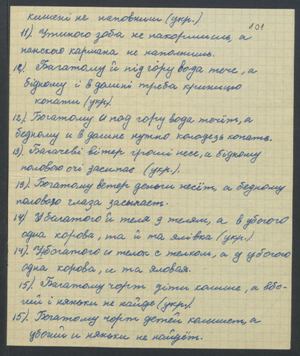 кишені не наповниш (укр.)
101
11). Утиного зоба не накормишь, а
панского кармана не наполнишь.
12). Багатому й під гору вода тече, а
бідному і в долині треба криницю
копати (укр).
12). Богатому и под гору вода течёт, а
бедному и в долине нужно колодезь копать.
13). Багачеві вітер гроші несе, а бідному
половою очі засипає (укр.).
13). Богатому ветер деньги несёт, а бедному
половою глаза засыпает.
14). У багатого й теля з телям, а в убогого
одна корова, та й та ялівка (укр.)
14). У богатого и телок с телком, а у убогого
одна корова, и та яловая.
15). Багатому чорт діти колише, а вбо-
гий і няньки не найде (укр.)
15). Богатому чорт детей колышет, а
убогий и няньки не найдёт.